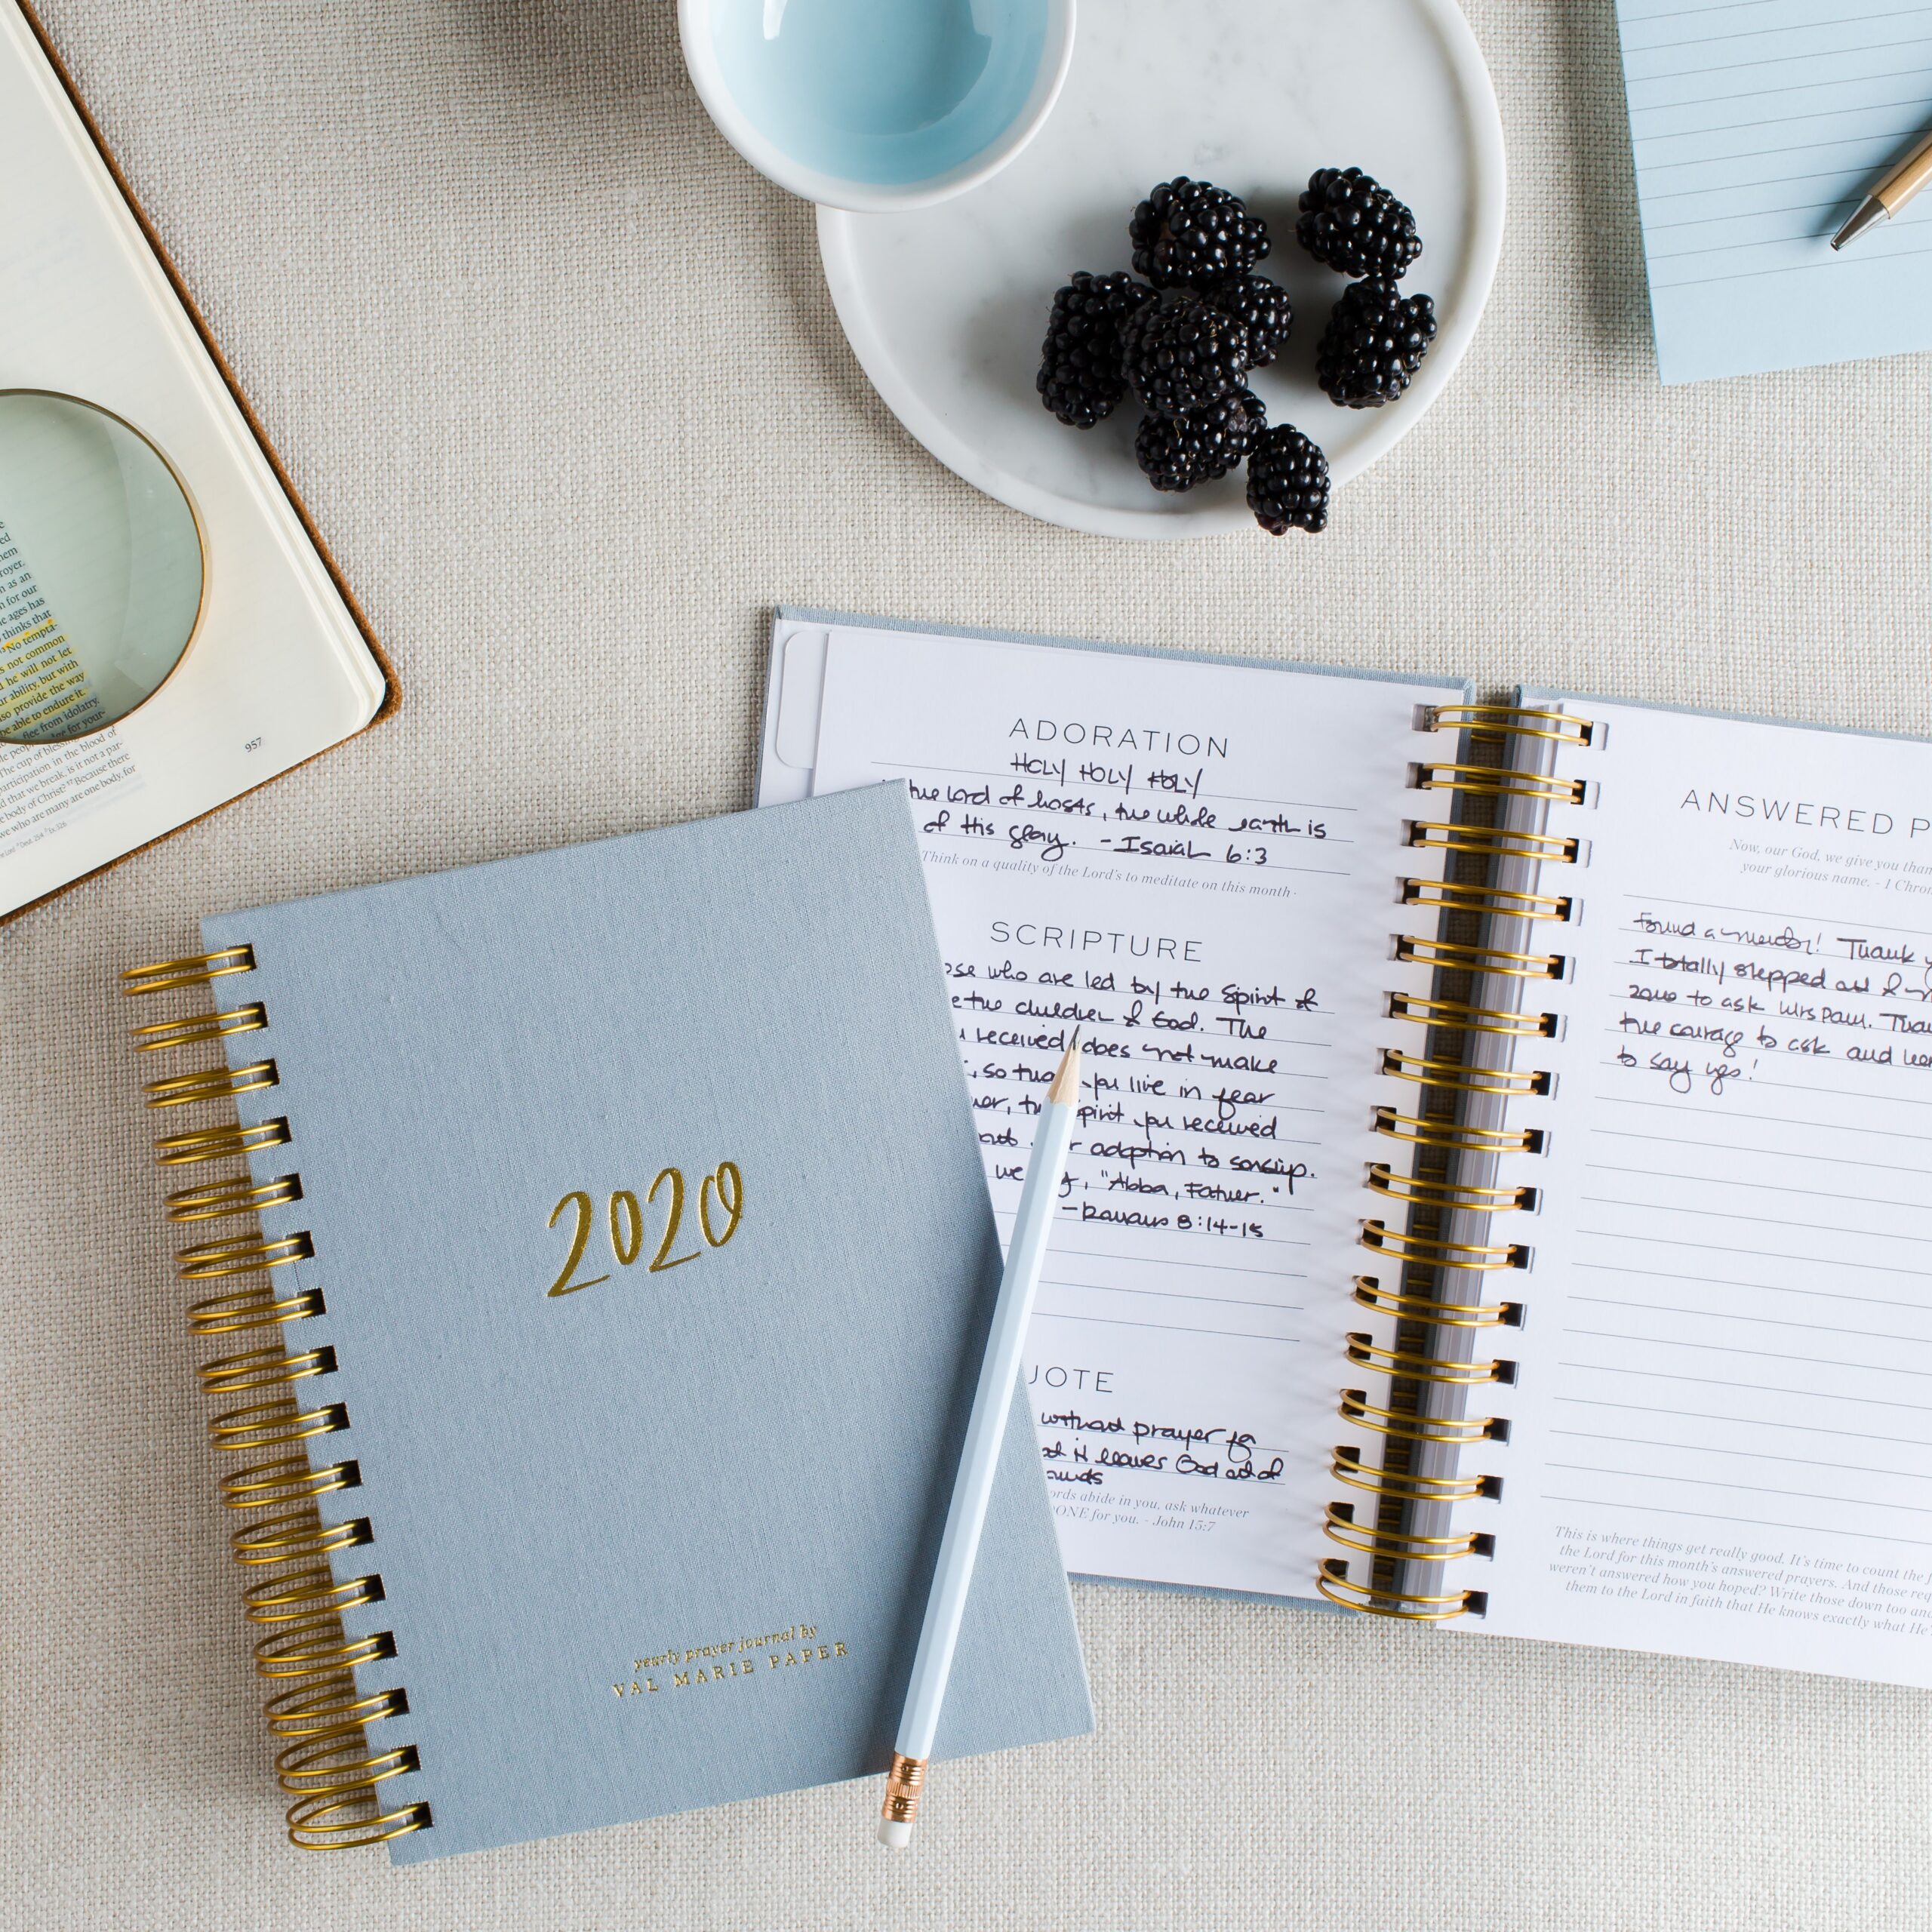 e
ed
hem
royer.
n as an
n for our
e ages has
thinks that
No tempta-
s not common
d he will not let
ur ability, but with
so provide the way
be able to endure it.
flee from idolatry.
ge for your-
The cup of blessing
participation in the blood of
d that we break, is it not a par-
e body of Christ? 17 Because there
we who are many are one body, for
957
2020
yearly prayer journal by
VAL MARIE PAPER
ADORATION
HOLY HOLY HOLY
the Lord of hosts, the whole earth is
of His glory. - Isaiah 6:3
Think on a quality of the Lord's to meditate on this month.
SCRIPTURE
ose who are led by the Spirit of
e the children of God. The
u received does not make
; so that you live in fear
, the Spirit you received
r adoption to sonship.
we , "Abba, Father."
- Romans 8:14-15
UOTE
without prayer
it leaves God out of
ands
ords abide in you, ask whatever
DONE for you. - John 15:7
ANSWERED P
Now, our God, we give you than
your glorious name. - 1 Chron
Found a mentor! Thank y
I totally stepped out of m
zone to ask Mrs Paul. Than
the courage to ask and her
to say yes!
This is where things get really good. It's time to count the f
the Lord for this month's answered prayers. And those req
weren't answered how you hoped? Write those down too and
them to the Lord in faith that He knows exactly what He'